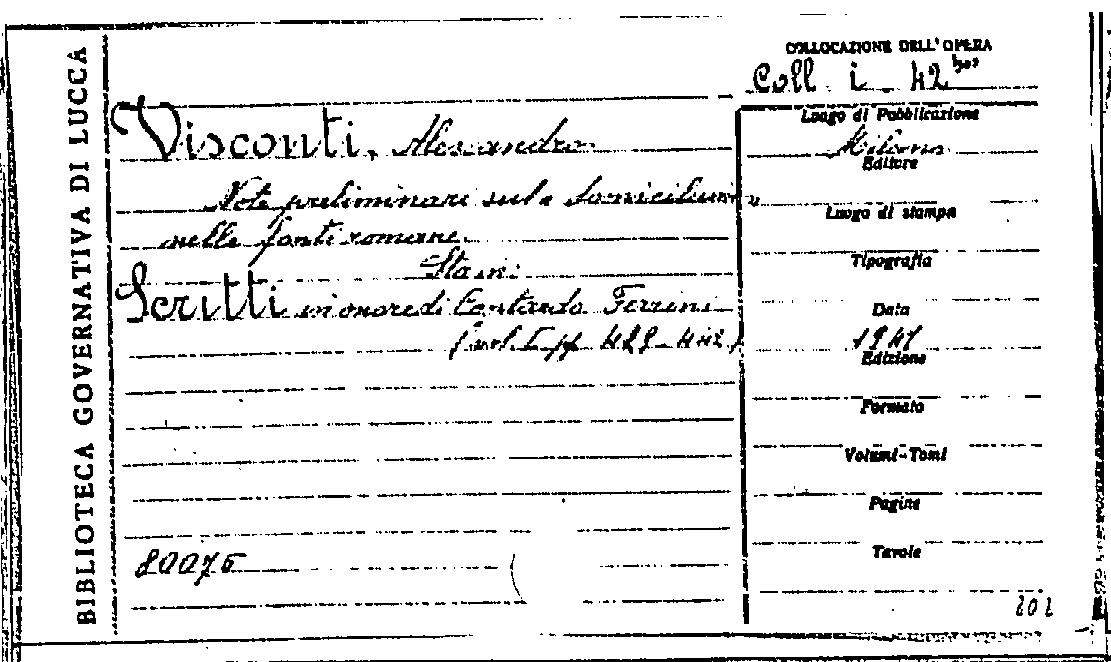 BIBLIOTECA GOVERNATIVA DI LUCCA
COLLOCAZIONE DELL'OPERA
Coll. i. 42
Visconti, Alessandro.
Note preliminari sul domicilium
nelle fonti romane.
Sta in:
Scritti in onore di Contardo Ferrini
(vol. I pp. 429-442)
80075
Luogo di Pubblicazione
Milano
Editore
Luogo di stampa
Tipografia
Data
1947
Edizione
Formato
Volumi-Tomi
Pagine
Tavole
202